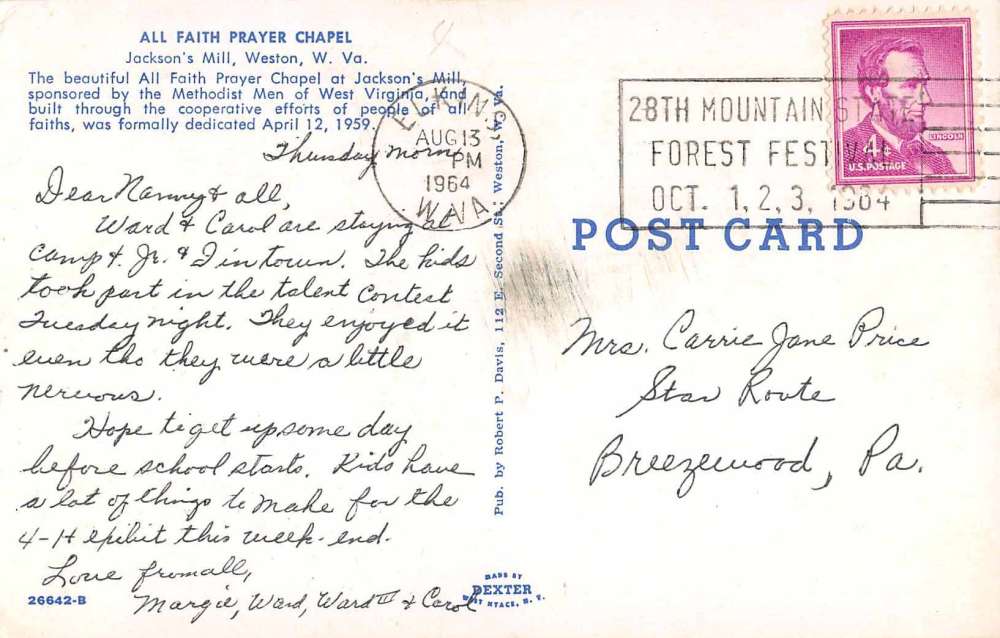 ALL FAITH PRAYER CHAPEL
Jackson's Mill, Weston, W. Va.
The beautiful All Faith Prayer Chapel at Jackson's Mill,
sponsored by the Methodist Men of West Virginia, and
built through the cooperative efforts of people of all
faiths, was formally dedicated April 12, 1959.
Thursday Morn.
Dear Nanny & all,
Ward & Carol are staying at
Camp & Jr. & I in town. The kids
took part in the talent contest
Tuesday night. They enjoyed it
even tho they were a little
nervous.
Hope to get up some day
before school starts. Kids have
a lot of things to make for the
4-H exibit this week-end.
Love from all,
Margie, Ward, Ward III & Carol
26642-B
Pub. by Robert P. Davis, 112 E. Second St., Weston, W. Va.
MADE BY
DEXTER
WEST NYACK, N. Y.
ELKINS,
AUG 13
PM
1964
W.VA.
28TH MOUNTAIN STATE
FOREST FESTIVAL
OCT. 1, 2, 3, 1964
4¢
LINCOLN
U.S. POSTAGE
POST CARD
Mrs. Carrie Jane Price
Star Route
Breezewood, Pa.